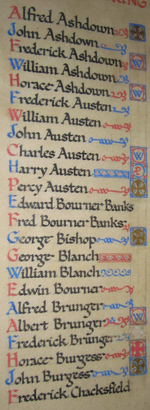 KING
Alfred Ashdown
John Ashdown
Frederick Ashdown
William Ashdown
Horace Ashdown
Frederick Austen
William Austen
John Austen
Charles Austen
Harry Austen
Percy Austen
Edward Bourner Banks
Fred Bourner Banks
George Bishop
George Blanch
William Blanch
Edwin Bourner
Alfred Brunger
Albert Brunger
Frederick Brunger
Horace Burgess
John Burgess
Frederick Chacksfield